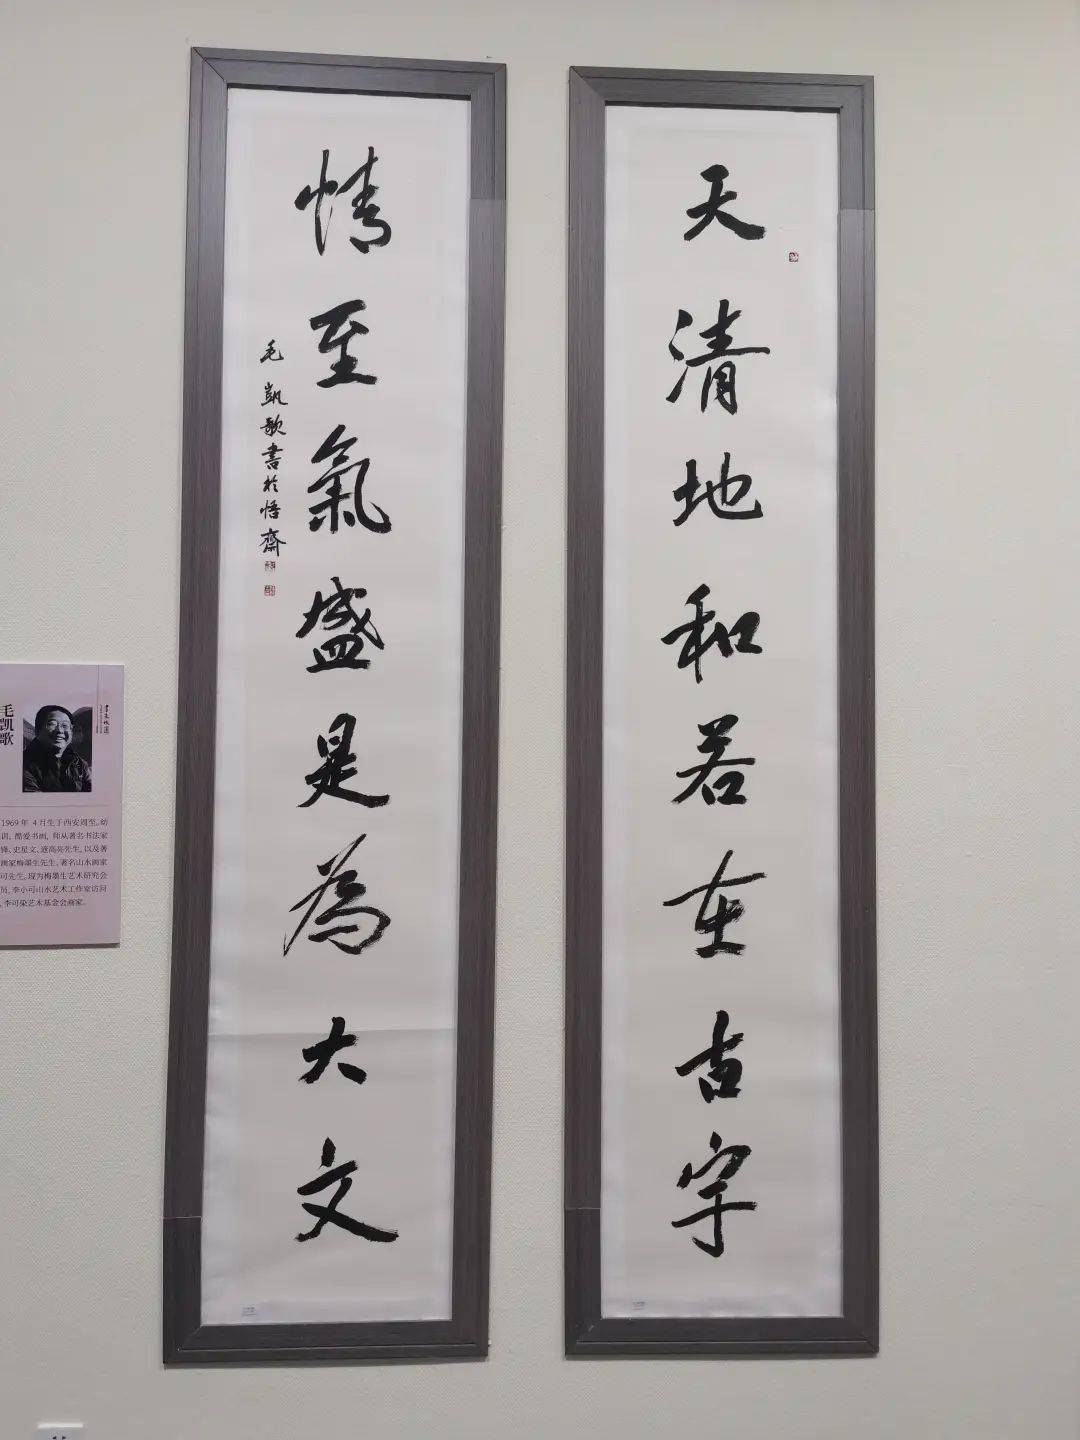 天清地和若在古宇
情至氣盛是為大文
毛凱歌書於悟齋
毛凯歌
1969年 4月生于西安周至,幼
训,酷爱书画,师从著名书法家
锋、史星文、遆高亮先生,以及著
画家梅墨生先生,著名山水画家
可先生,现为梅墨生艺术研究会
员,李小可山水艺术工作室访问
,李可染艺术基金会画家。